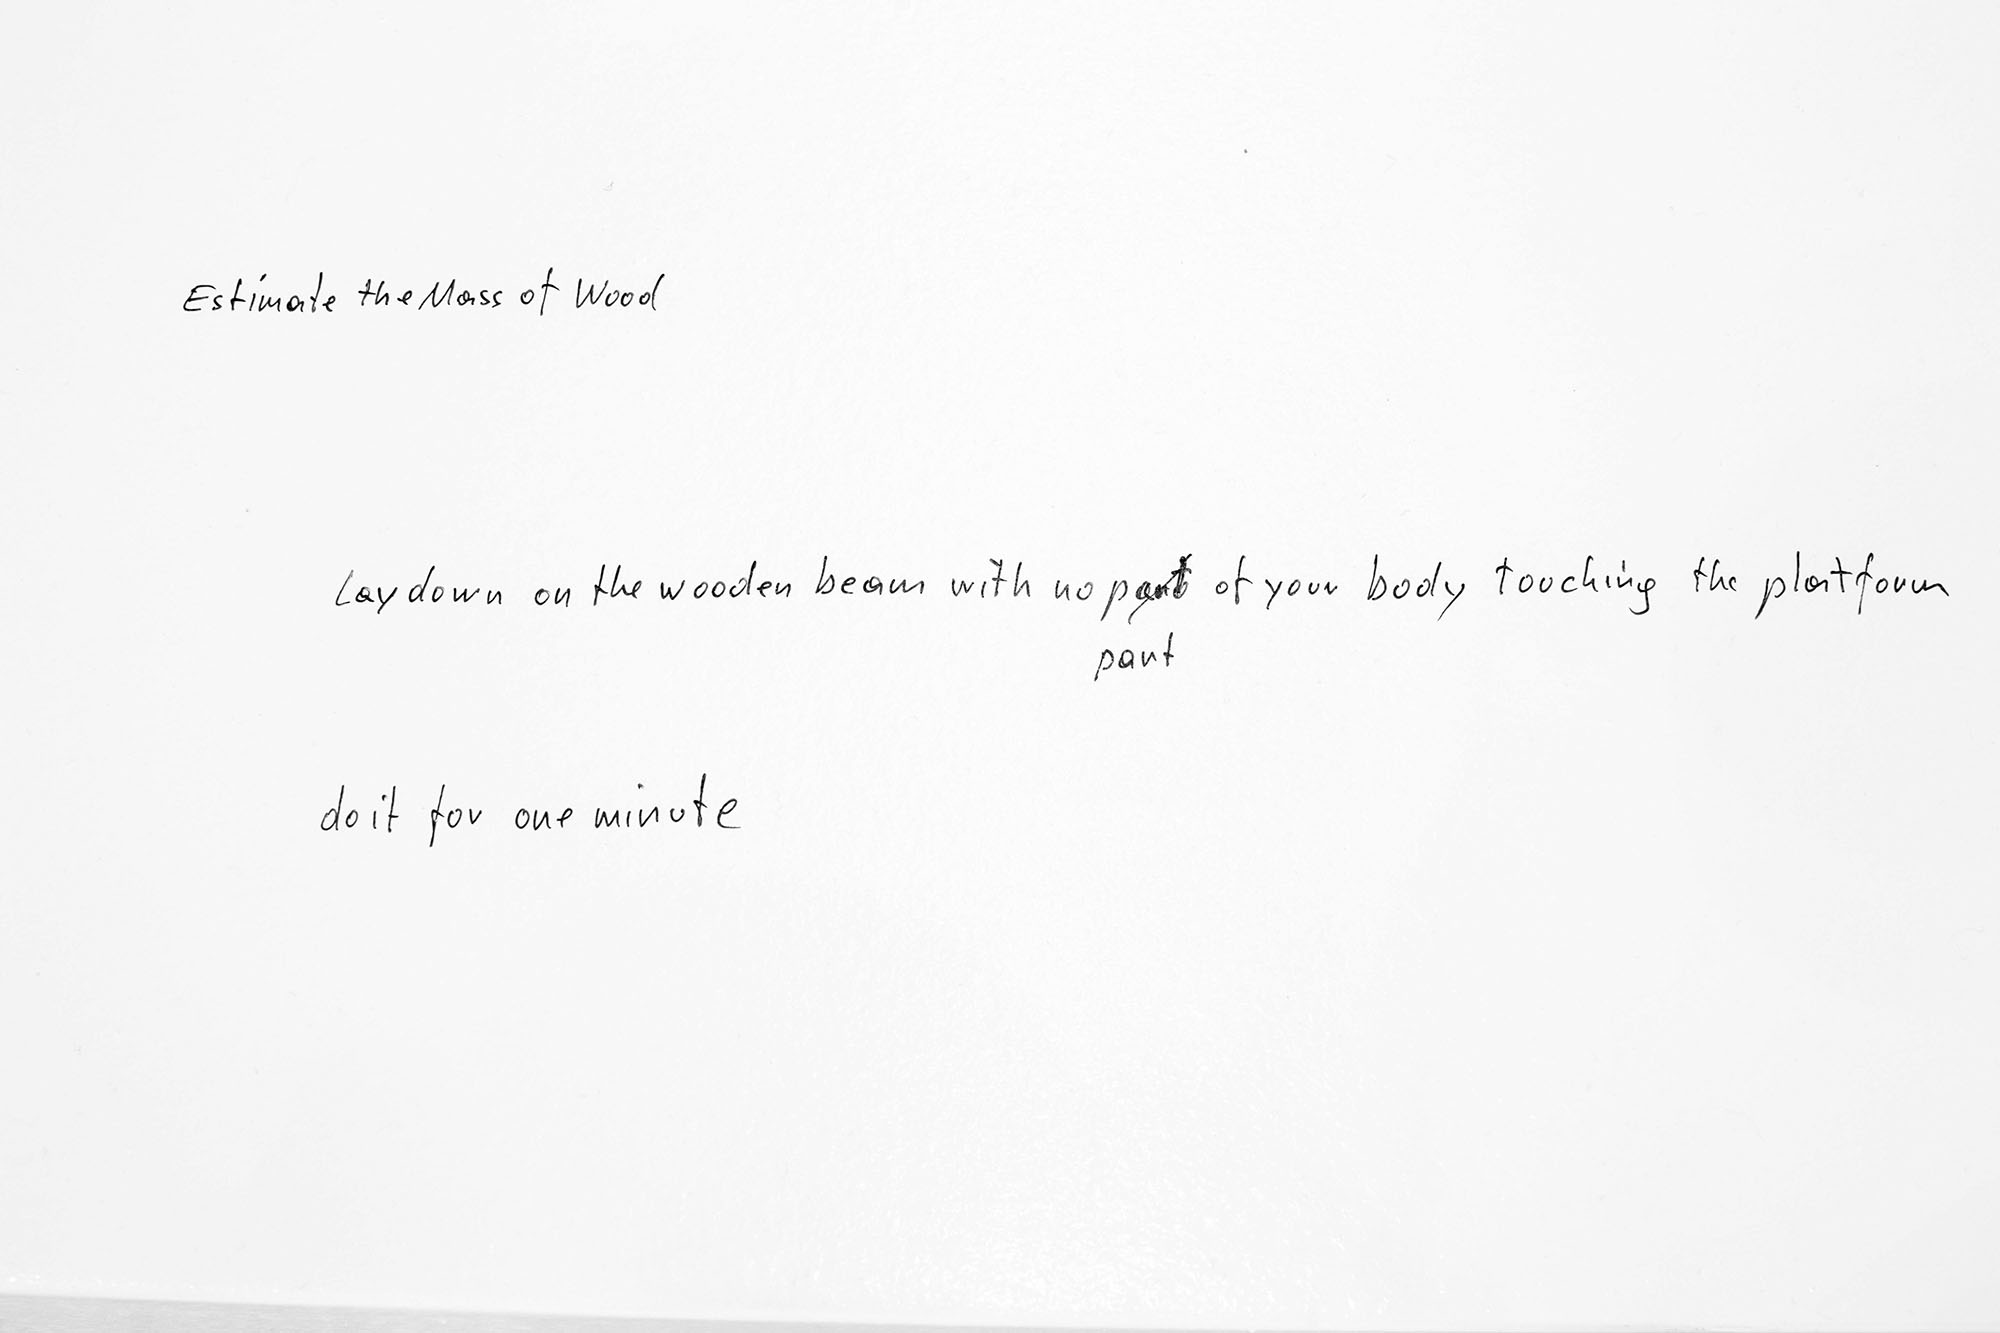 Estimate the Mass of Wood
Lay down on the wooden beam with no part of your body touching the platform
part
do it for one minute